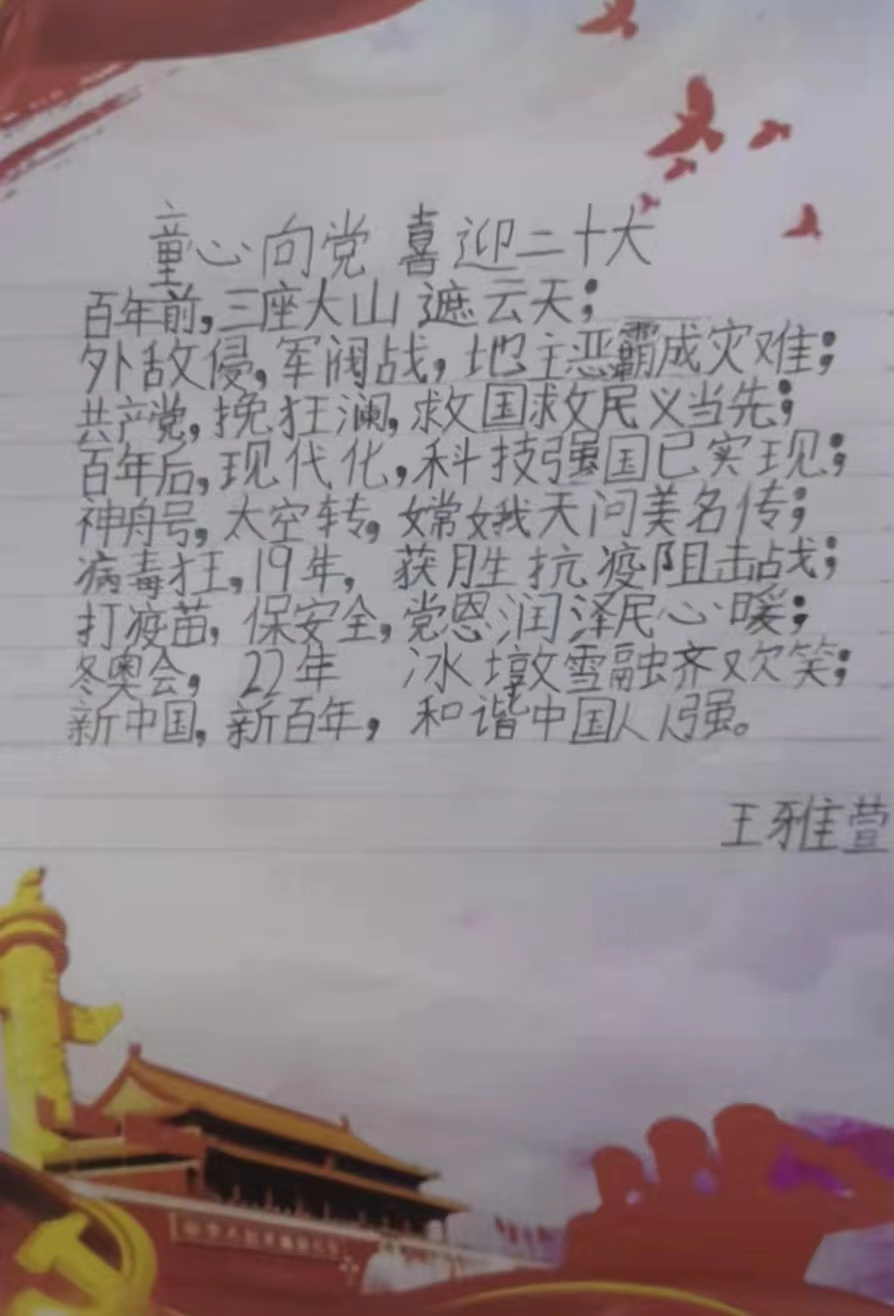 童心向党 喜迎二十大
百年前,三座大山遮云天;
外敌侵,军阀战,地主恶霸成灾难;
共产党,挽狂澜,救国救民义当先;
百年后,现代化,科技强国已实现;
神舟号,太空转,嫦娥天问美名传;
病毒狂,19年,获胜抗疫阻击战;
打疫苗,保安全,党恩润泽民心暖;
冬奥会,22年 冰墩雪融齐欢笑;
新中国,新百年,和谐中国人人强。
王雅萱